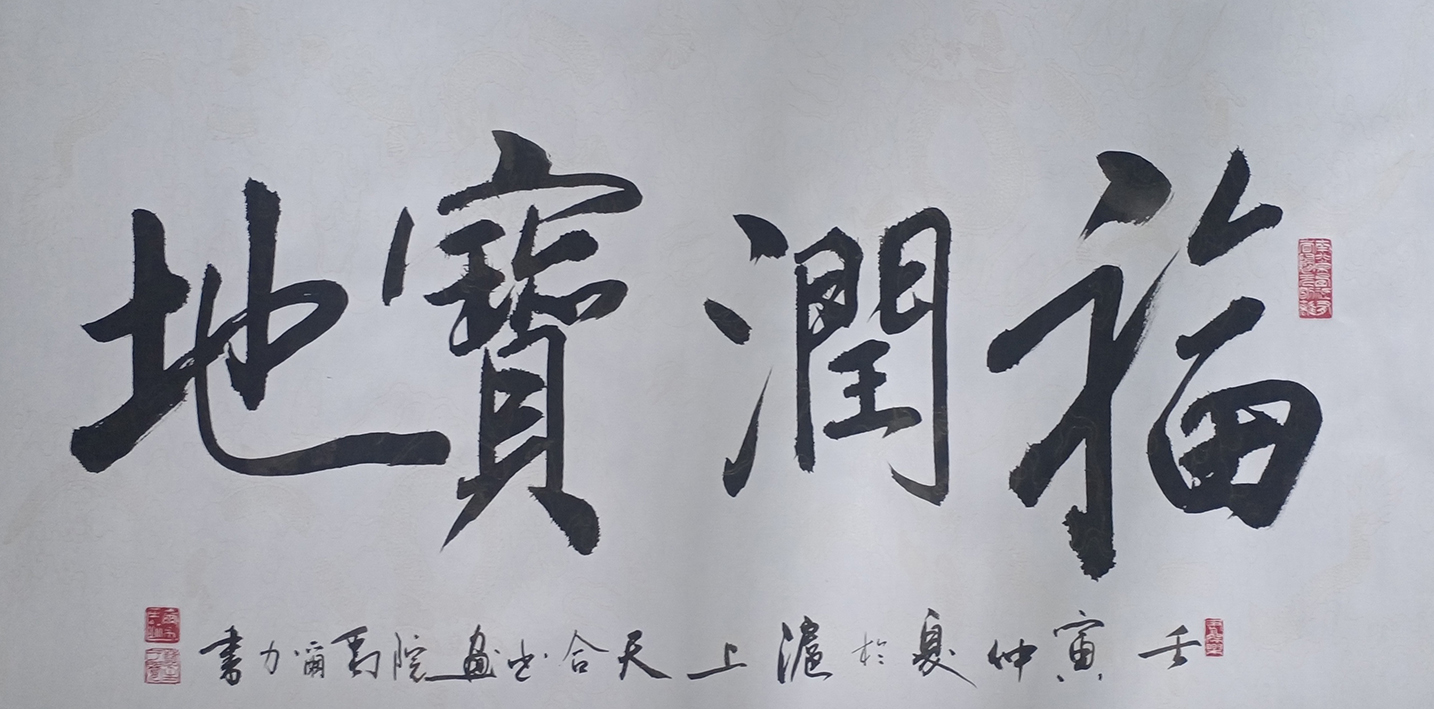 福潤寶地
壬寅仲夏於滬上天合书畫院爾力書